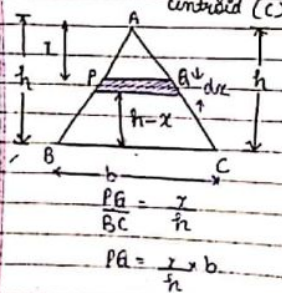 Centroid (C)
A
x
h
P
Q
dx
h
h-x
B
b
C
PQ/BC = x/h
PQ = x/h × b